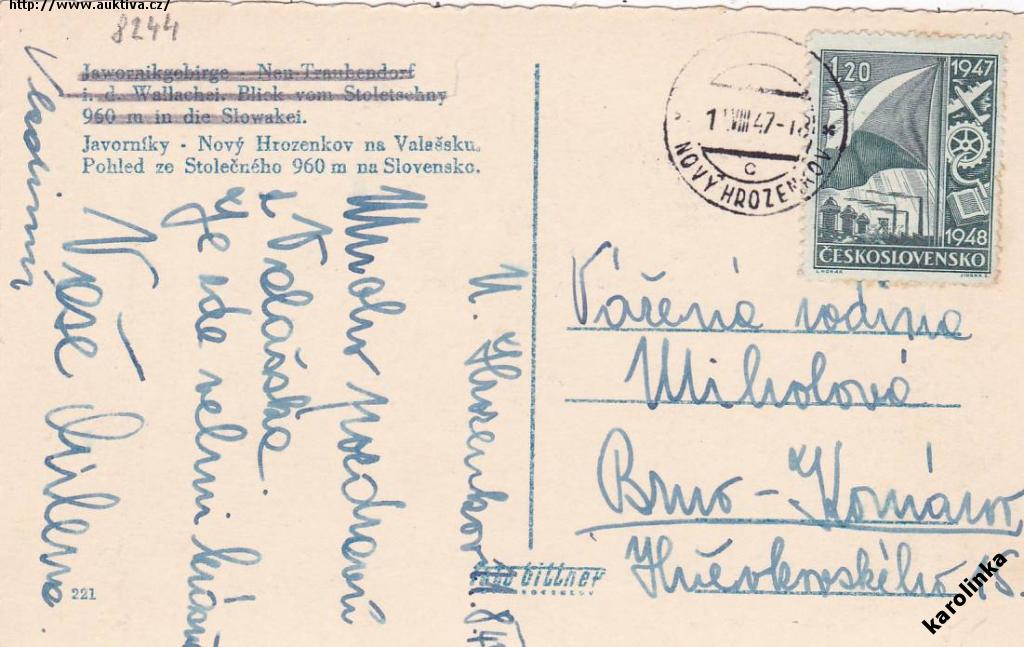 http://www.auktiva.cz/
8244
Jawornikgebirge - Neu-Traubendorf
i. d. Wallachei. Blick vom Stoletschny
960 m in die Slowakei.
Javorníky - Nový Hrozenkov na Valašsku.
Pohled ze Stolečného 960 m na Slovensko.
N. Hrozenkov 8.47
Mnoho pozdravů
z Valašska.
Je zde velmi krásně
Vaše Milena
221
foto bittner
NOVÝ HROZENKOV
C
VIII 47
1.20
1947
1948
ČESKOSLOVENSKO
Vážená rodina
Miholová
Brno - Komárov
Hněvkovského 15.
karolinka